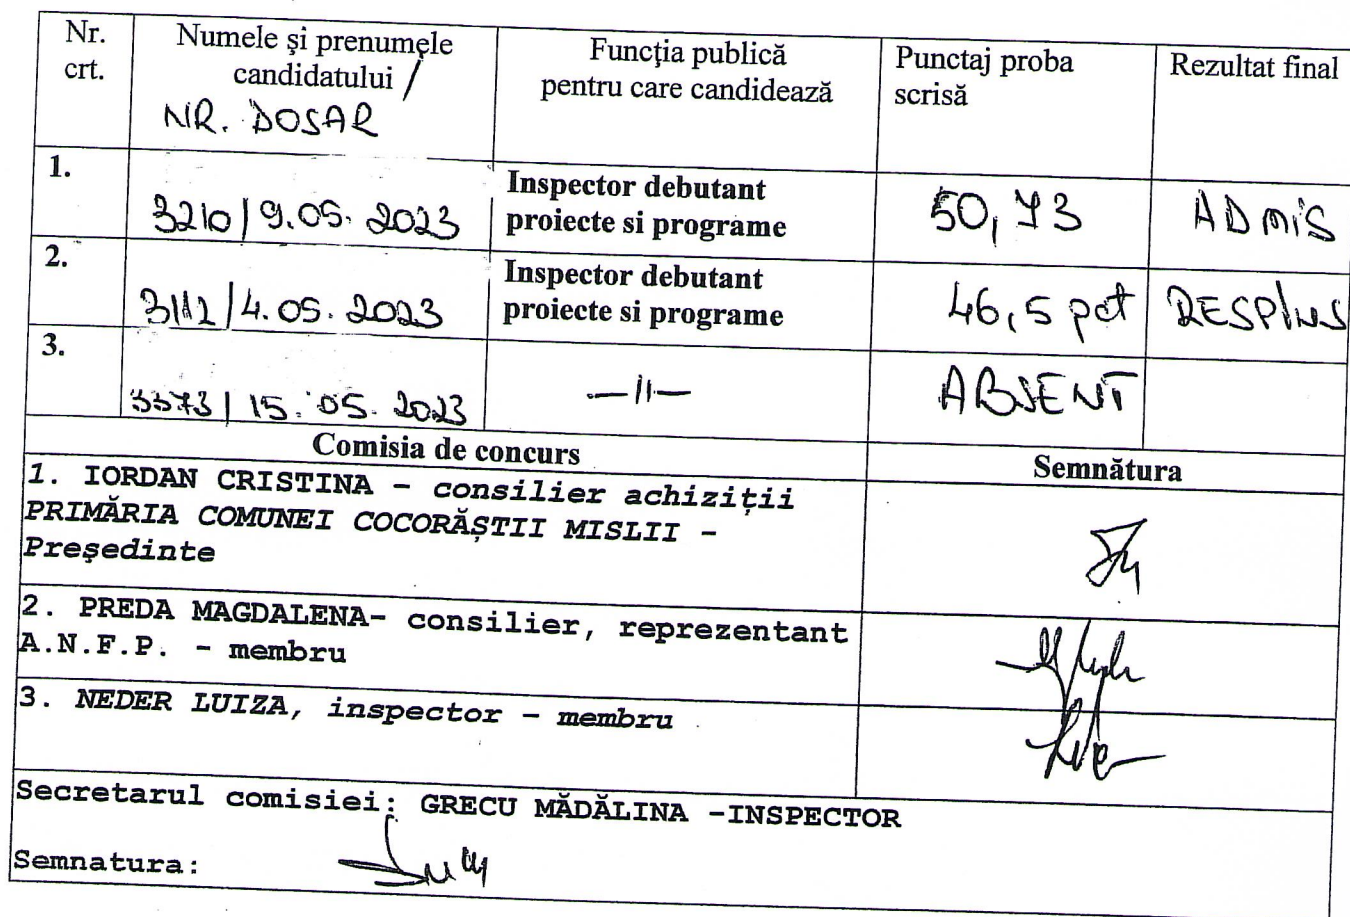 Nr. crt.
Numele și prenumele
candidatului /
NR. DOSAR
Funcția publică
pentru care candidează
Punctaj proba
scrisă
Rezultat final
1.
3210/9.05.2023
Inspector debutant
proiecte si programe
50,73
ADMIS
2.
3112/4.05.2023
Inspector debutant
proiecte si programe
46,5 pct
RESPINS
3.
3373/15.05.2023
—II—
ABSENT
Comisia de concurs
Semnătura
1. IORDAN CRISTINA - consilier achiziții
PRIMĂRIA COMUNEI COCORĂȘTII MISLII -
Președinte
2. PREDA MAGDALENA- consilier, reprezentant
A.N.F.P. - membru
3. NEDER LUIZA, inspector - membru
Secretarul comisiei: GRECU MĂDĂLINA -INSPECTOR
Semnatura: